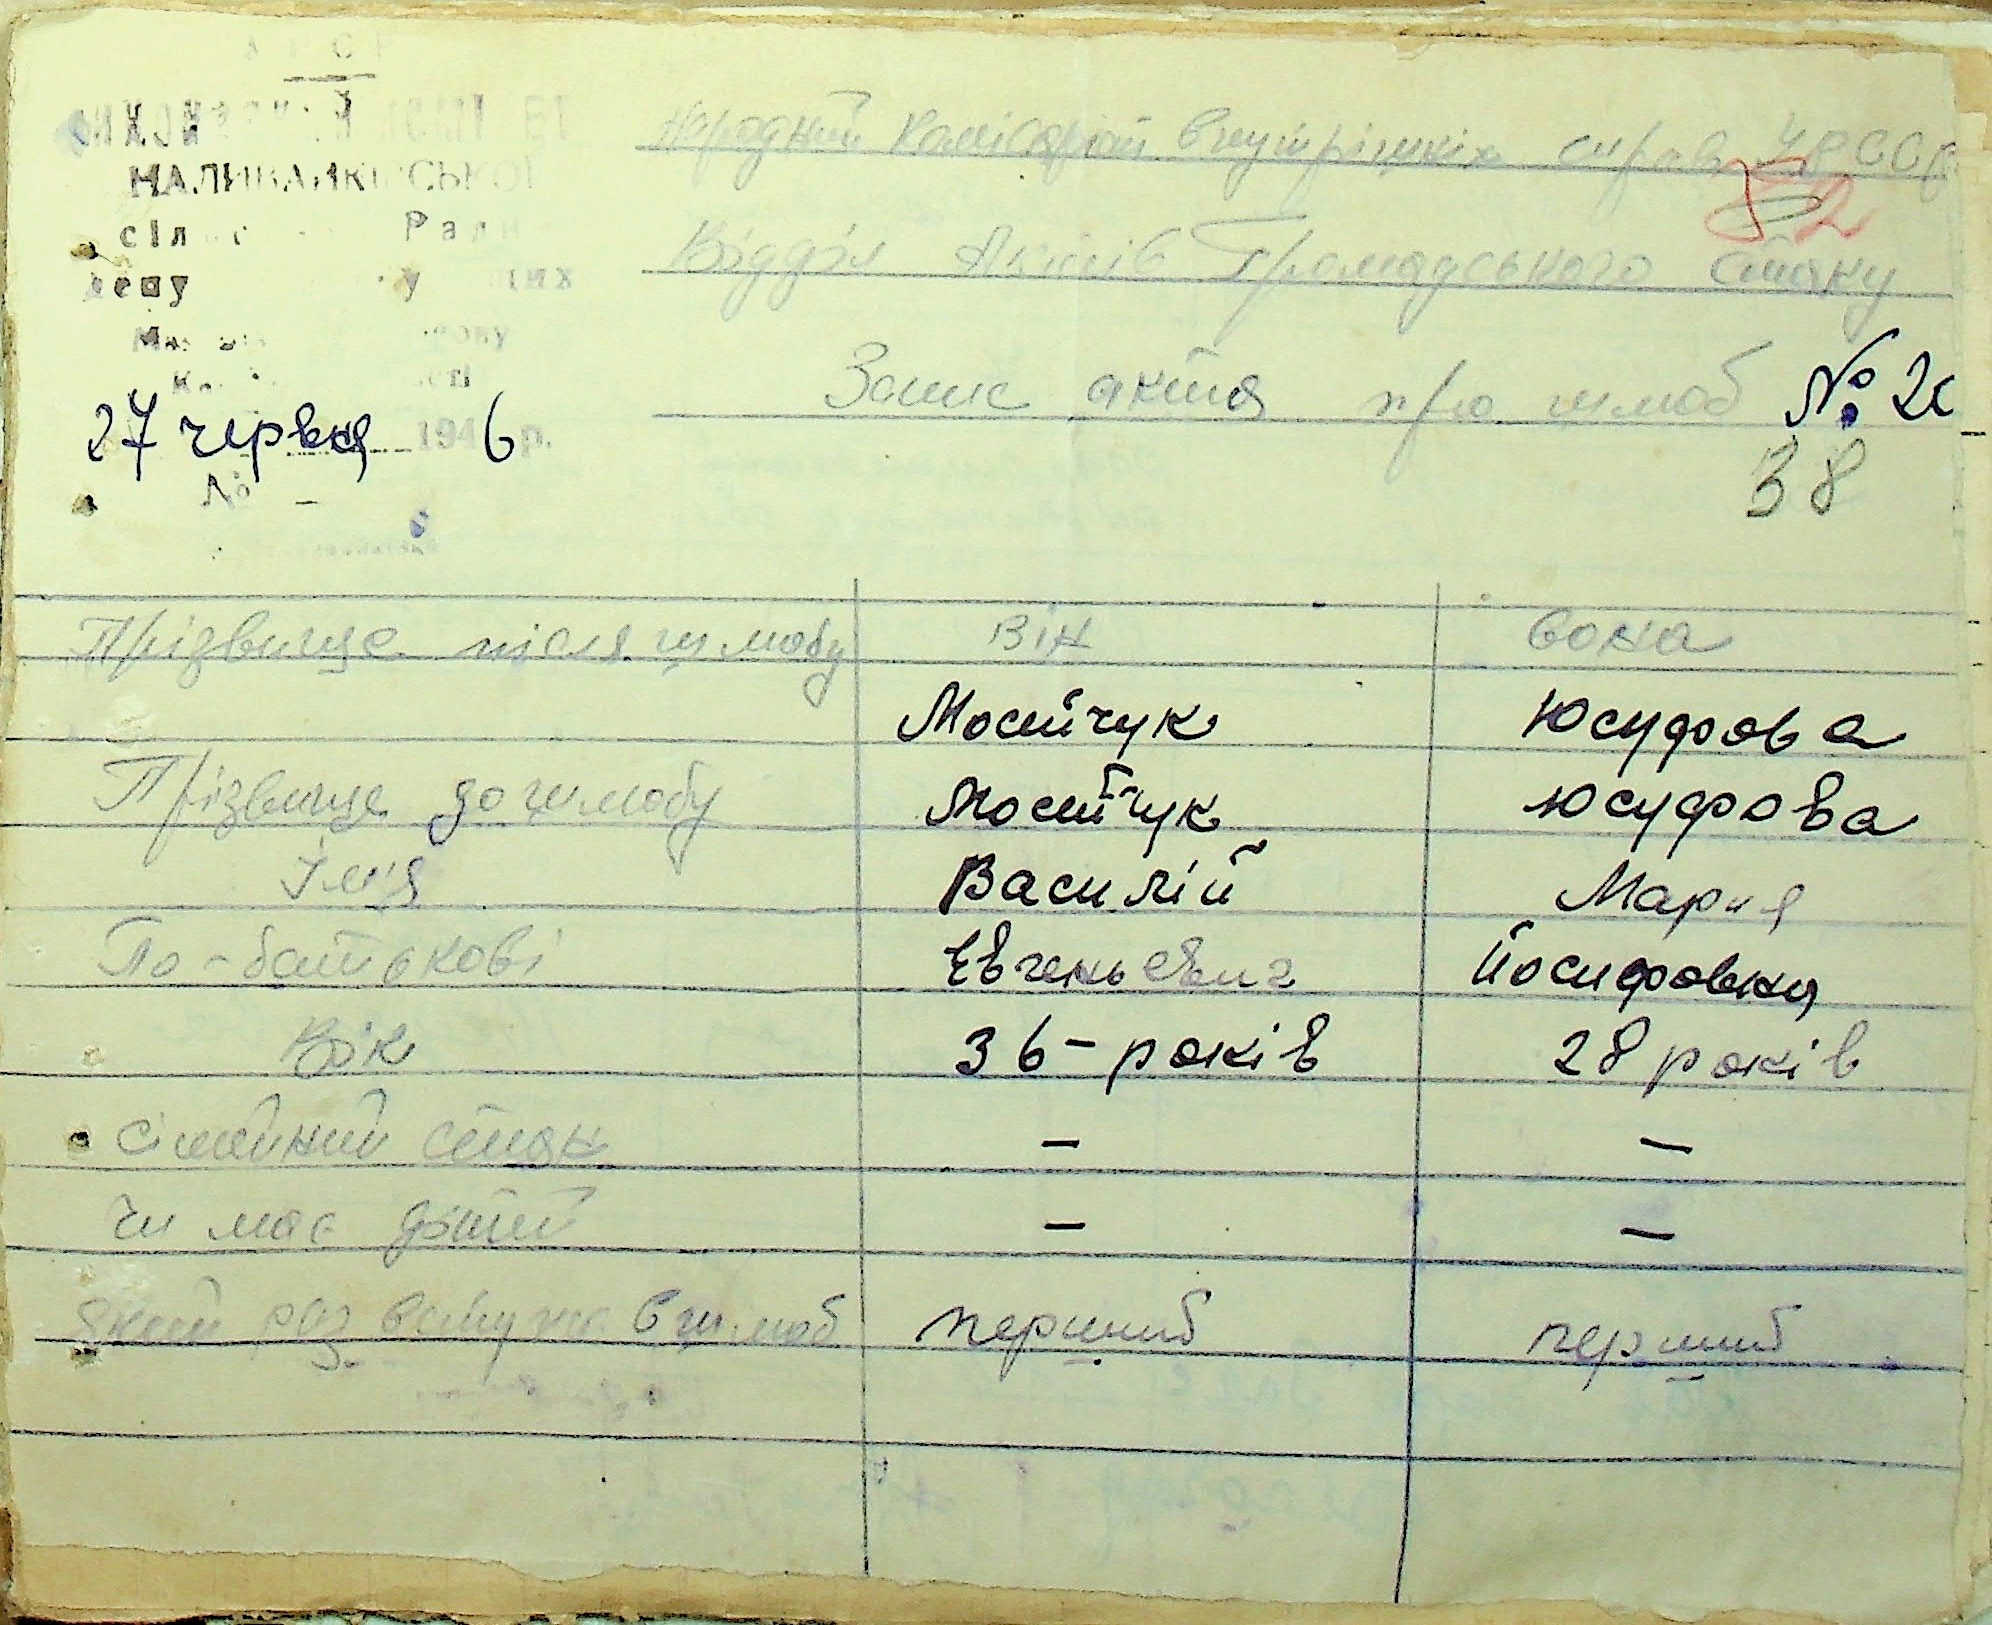 НАЛИВАЙКІВСЬКОЇ
27 червня 1946 р.
№ –
Народний Комісаріат внутрішніх справ УРССР
52
Відділ Актів Громадського Стану
Запис актів про шлюб № 2
38
Прізвище після шлюбу Він вона
Мосийчук Юсуфова
Прізвище до шлюбу Мосийчук Юсуфова
Ім'я Василій Мария
По-батькові Евгеньевич Йосифовна
Вік 36-років 28 років
Сімейний стан – –
Чи має дітей – –
який раз вступає в шлюб перший перший